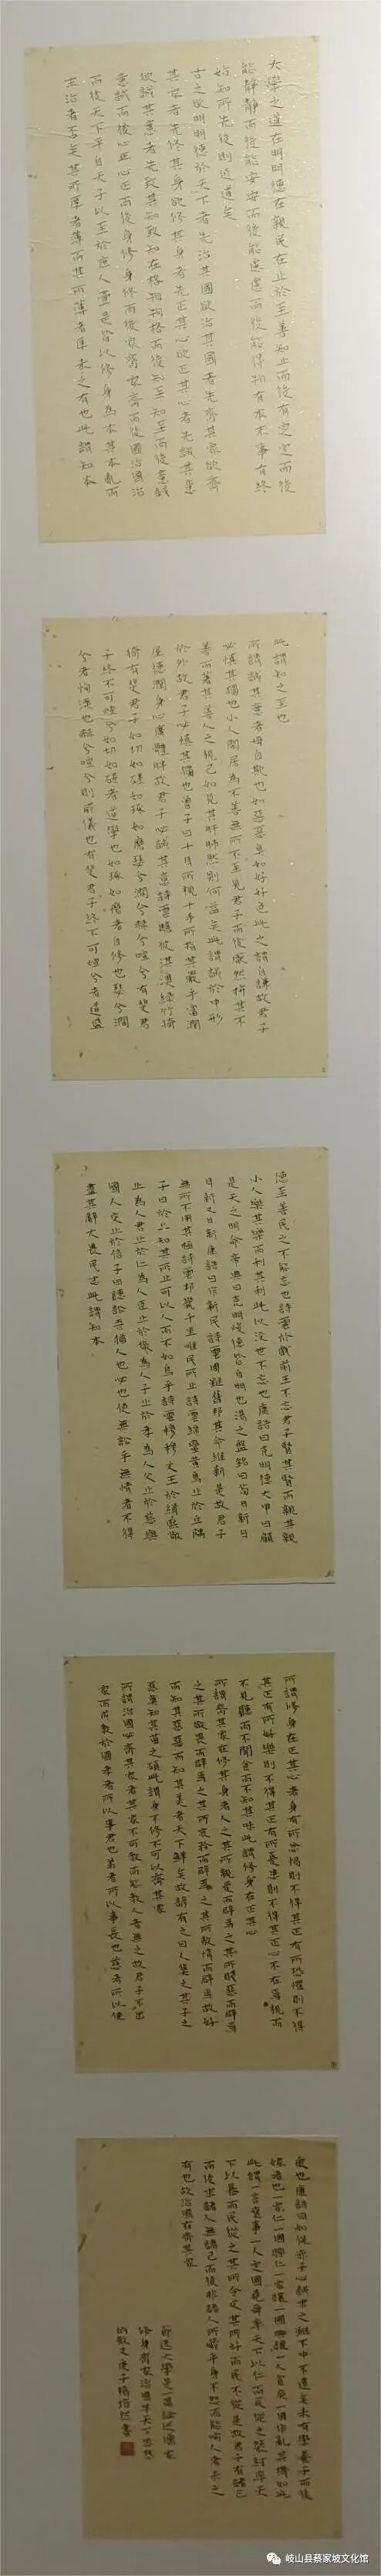 大學之道在明明德在親民在止於至善知止而後有定定而後
能靜靜而後能安安而後能慮慮而後能得物有本末事有終
始知所先後則近道矣
古之欲明明德於天下者先治其國欲治其國者先齊其家欲齊
其家者先修其身欲修其身者先正其心欲正其心者先誠其意
欲誠其意者先致其知致知在格物物格而後知至知至而後意誠
意誠而後心正心正而後身修身修而後家齊家齊而後國治國治
而後天下平自天子以至於庶人壹是皆以修身為本其本亂而
末治者否矣其所厚者薄而其所薄者厚未之有也此謂知本
此謂知之至也
所謂誠其意者毋自欺也如惡惡臭如好好色此之謂自謙故君子
必慎其獨也小人閒居為不善無所不至見君子而後厭然揜其不
善而著其善人之視己如見其肺肝然則何益矣此謂誠於中形
於外故君子必慎其獨也曾子曰十目所視十手所指其嚴乎富潤
屋德潤身心廣體胖故君子必誠其意詩雲瞻彼淇澳綠竹猗
猗有斐君子如切如磋如琢如磨瑟兮僩兮赫兮喧兮有斐君
子終不可諠兮如切如磋者道學也如琢如磨者自修也瑟兮僩
兮者恂慄也赫兮喧兮則威儀也有斐君子終不可諠兮者道盛
德至善民之不能忘也詩雲於戲前王不忘君子賢其賢而親其親
小人樂其樂而利其利此以沒世不忘也康誥曰克明德大甲曰顧
是天之明命帝典曰克明峻德皆自明也湯之盤銘曰茍日新日
日新又日新康誥曰作新民詩雲周雖舊邦其命維新是故君子
無所不用其極詩雲邦畿千里唯民所止詩雲緡蠻黃鳥止於丘隅
子曰於止知其所止可以人而不如鳥乎詩雲穆穆文王於緝熙敬
止為人君止於仁為人臣止於敬為人子止於孝為人父止於慈與
國人交止於信子曰聽訟吾猶人也必也使無訟乎無情者不得
盡其辭大畏民志此謂知本
所謂修身在正其心者身有所忿懥則不得其正有所恐懼則不得
其正有所好樂則不得其正有所憂患則不得其正心不在焉視而
不見聽而不聞食而不知其味此謂修身在正其心
所謂齊其家在修其身者人之其所親愛而辟焉之其所賤惡而辟焉
之其所敬畏而辟焉之其所哀矜而辟焉之其所敖惰而辟焉故好
而知其惡惡而知其美者天下鮮矣故諺有之曰人莫知其子之
惡莫知其苗之碩此謂身不修不可以齊其家
所謂治國必齊其家者其家不可教而能教人者無之故君子不出
家而成教於國孝者所以事君也弟者所以事長也慈者所以使
眾也康誥曰如保赤子心誠求之雖不中不遠矣未有學養子而後
嫁者也一家仁一國興仁一家讓一國興讓一人貪戾一國作亂其機如此
此謂一言僨事一人定國堯舜率天下以仁而民從之桀紂率天
下以暴而民從之其所令反其所好而民不從是故君子有諸己
而後求諸人無諸己而後非諸人所藏乎身不恕而能喻人者未之
有也故治國在齊其家
節選大學是一篇論述儒家
修身齊家治國平天下思想
的散文庚子楊
岐山县蔡家坡文化馆